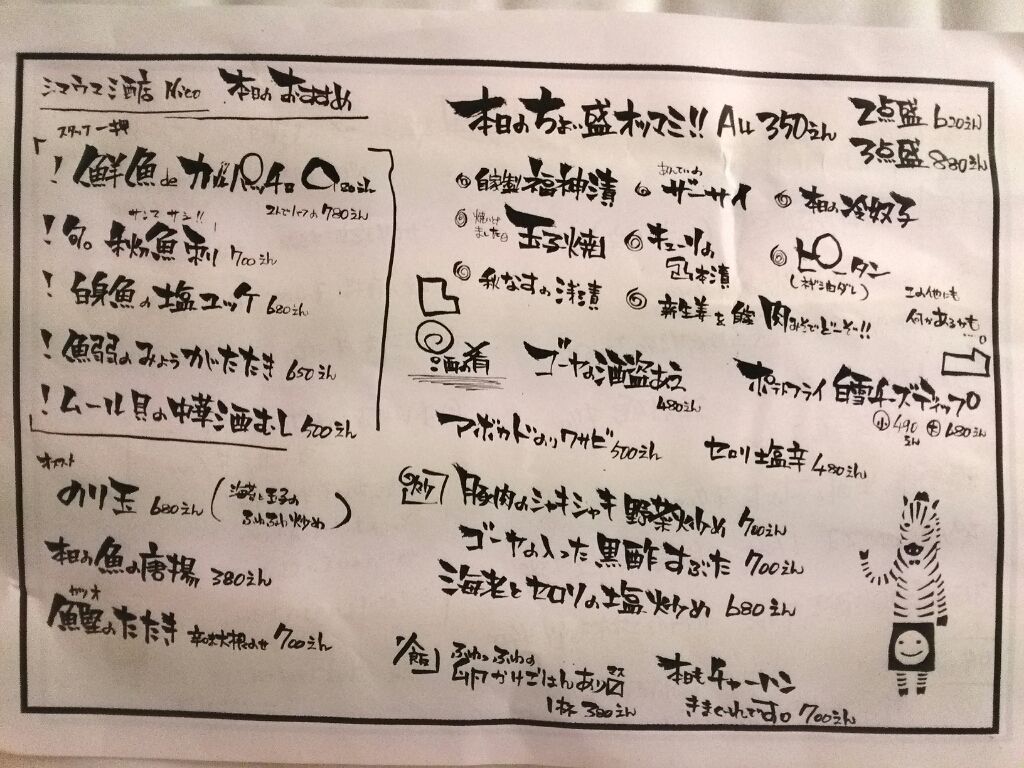 シマウマ酒店 Nico 本日のおすすめ
スタッフ一押
！鮮魚deカルパッチョ
ストでハーフの780えん
サンマ サシ!!
！旬。秋魚刺 700えん
！白身魚の塩ユッケ 680えん
！鰯のみょうがたたき 650えん
！ムール貝の中華酒むし 500えん
オススメ
のり玉 680えん (海苔と玉子のふわふわ炒め)
本日の魚の唐揚 380えん
カツオ
鰹のたたき 辛味大根のせ 700えん
本日のちょい盛オツマミ!! ALL 350えん
2点盛 620えん
3点盛 880えん
自家製福神漬
ザーサイ
本日の冷奴子
焼いときました
玉子焼
キューリの
一本漬
ピータン
(ネギ油ダレ)
秋なすの浅漬
新生姜を 肉みそでどーぞー!!
この他にも
何かあるかも
酒の肴
ゴーヤの酒盗あえ
480えん
ポテトフライ 白雪チーズディップ
小490えん 大680えん
アボカドのりワサビ 500えん
セロリ塩辛 480えん
炒
豚肉のシャキシャキ野菜炒め 700えん
ゴーヤの入った黒酢すぶた 700えん
海老とセロリの塩炒め 680えん
飯
ふわっふわの
卵かけごはんあり〼
1杯 380えん
本日もチャーハン
きまぐれですo 700えん